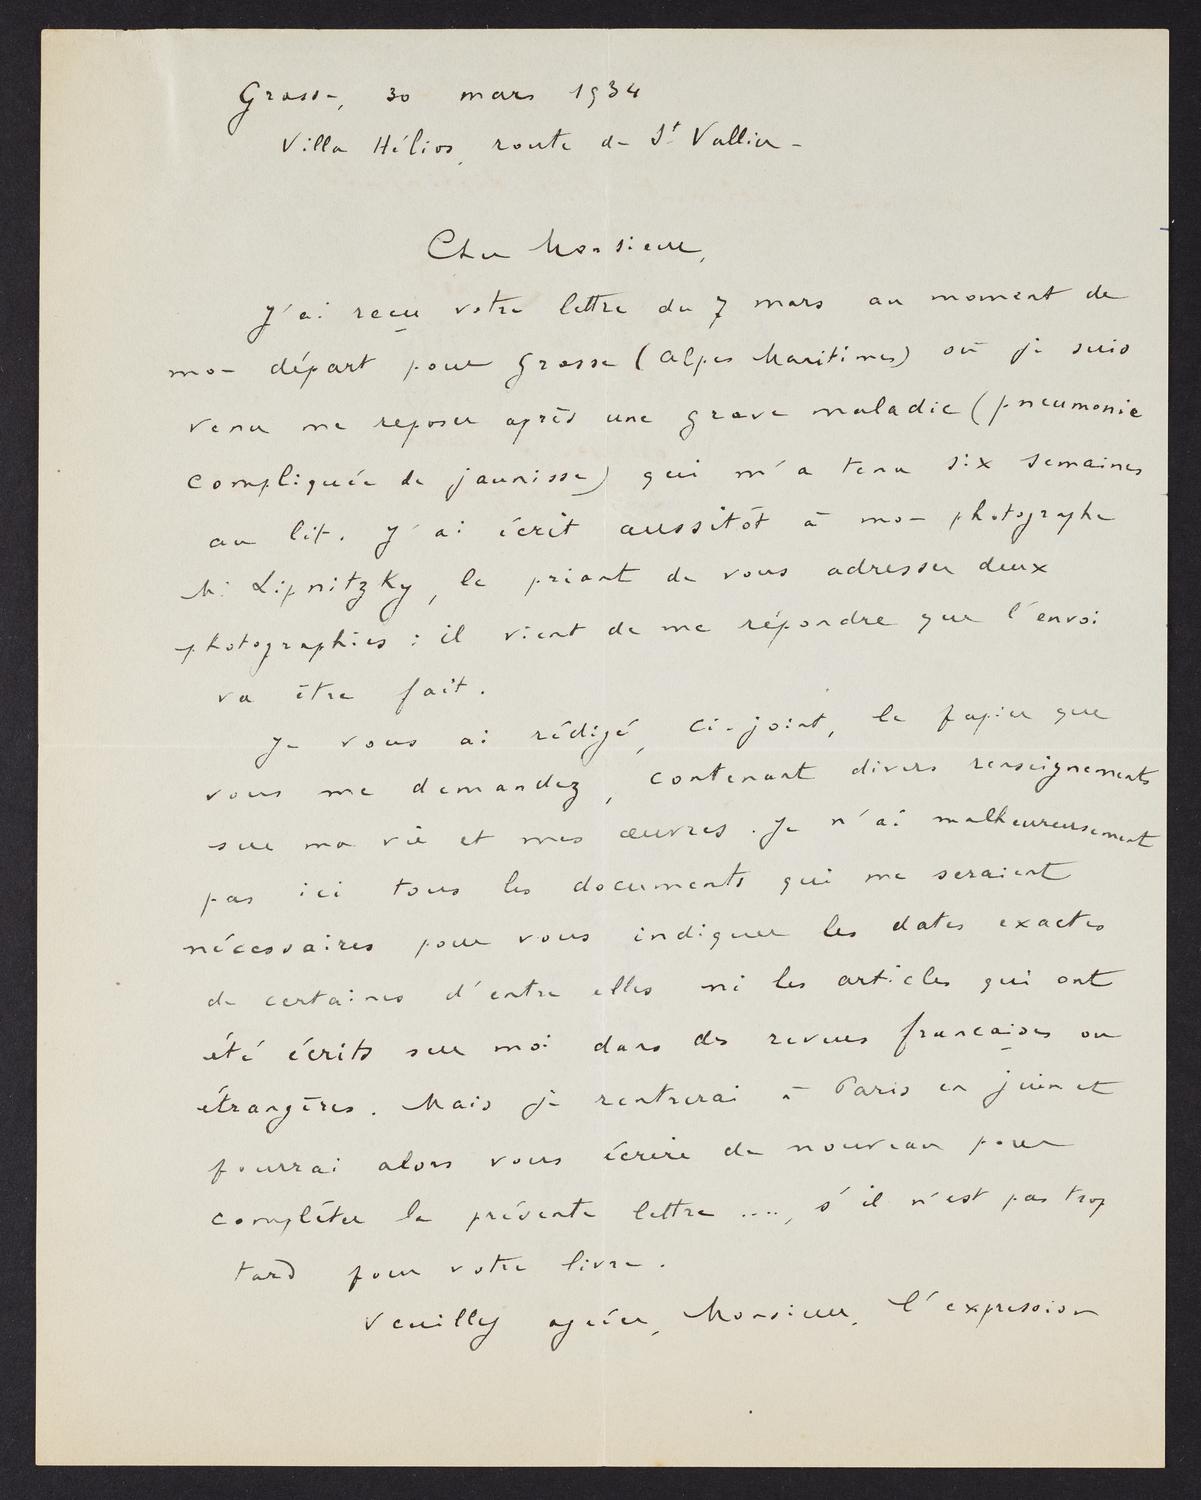 Grasse, 30 mars 1934
Villa Hélios, route de St Vallier -
Cher Monsieur,
J'ai reçu votre lettre du 7 mars au moment de
mon départ pour Grasse (Alpes Maritimes) où je suis
venu me reposer après une grave maladie (pneumonie
compliquée de jaunisse) qui m'a tenu six semaines
au lit. J'ai écrit aussitôt à mon photographe
M. Lipnitzky, le priant de vous adresser deux
photographies : il vient de me répondre que l'envoi
va être fait.
Je vous ai rédigé, ci-joint, le papier que
vous me demandez, contenant divers renseignements
sur ma vie et mes œuvres. Je n'ai malheureusement
pas ici tous les documents qui me seraient
nécessaires pour vous indiquer les dates exactes
de certaines d'entre elles ni les articles qui ont
été écrits sur moi dans des revues françaises ou
étrangères. Mais je rentrerai à Paris en juin et
pourrai alors vous écrire de nouveau pour
compléter la présente lettre ...., s'il n'est pas trop
tard pour votre livre.
Veuillez agréer, Monsieur, l'expression